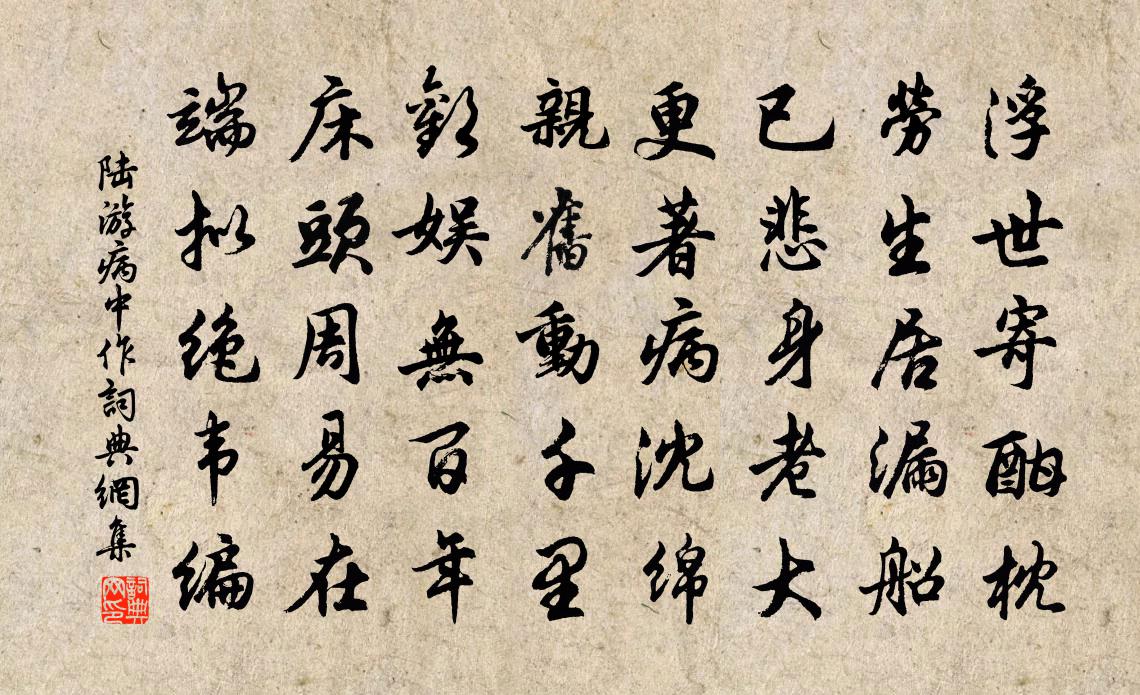 浮世寄酣枕
勞生居漏船
已悲身老大
更著病沈綿
親舊動千里
歡娱無百年
床頭周易在
端拟绝韦编
陆游病中作詞典網集
詞典網印